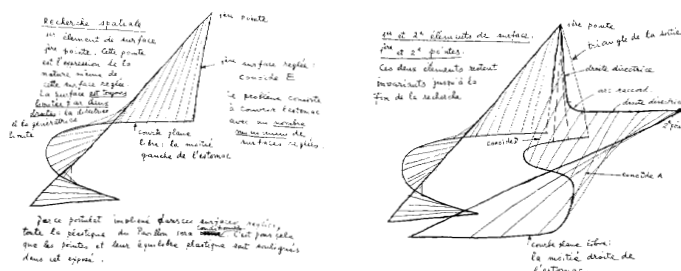 Recherche spatiale
1er élément de surface
1ère pointe. Cette pointe
est l'expression de la
nature même de
cette surface réglée.
La surface est toujours
limitée par deux
droites: la directrice
et la génératrice
limite
1ère pointe
1ère surface réglée:
conoïde E
le problème consiste
à couvrir l'estomac
avec un nombre
minimum de
surfaces réglées.
courbe plane
libre: la moitié
gauche de l'estomac
toute la plastique du Pavillon sera c'est pour cela
que les pointes et leur équilibre plastique sont soulignés
dans cet exposé.
1er et 2e éléments de surface.
1ère et 2e pointes.
Ces deux éléments restent
invariants jusqu'à la
fin de la recherche
1ère pointe
triangle de la sortie
droite directrice
arc raccord.
droite directrice
2e
conoïde
conoïde A
courbe plane libre:
la moitié droite de
l'estomac